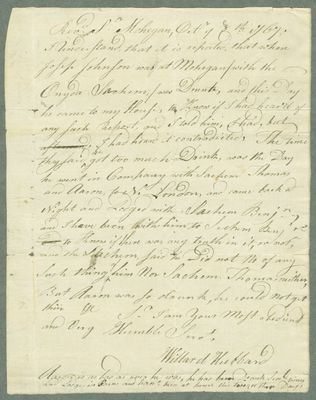 Revd Sr Mohegan, Octr ye 8th 1767
I understand, that it is reported that when
Joseph Johnson was at Mohegan with the
Onyda Sachem, was Drunk, and this Day
he came to my House, to Know if I had heard of
any such Report, and I told him, I had, but
I had heard it contradicted. The time
they said, got too much Drink, was the Day
he went in Company with Sachem Thomas
and Aaron, to N. London, and came back a
Night and Lodged with Sachem Benj.
and I have been with him to Sachem Benj.
to Know if there was any truth in it, or not,
and the Sachem said he Did not se of any
Such thing him Nor Sachem Thomas neither
But Aaron was so drunk, he could not get
there
Sr. I am Your Most obedient
and Very Humble Servt.
Willard Hubbard
Aaron is as bad as ever he was, he has been Drunk